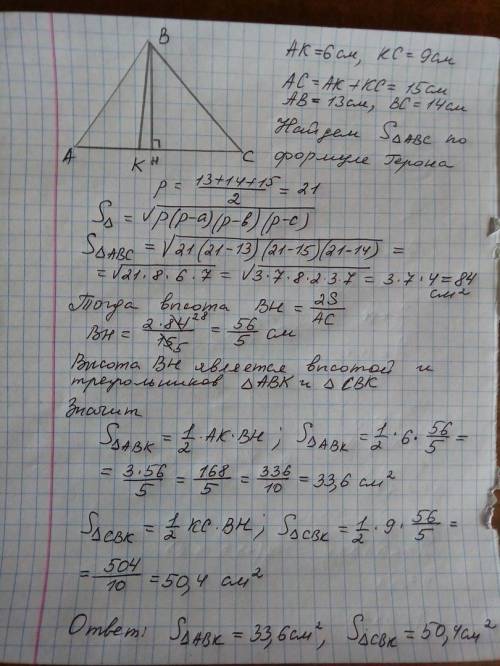 B
AK=6см, KC=9см
AC=AK+KC=15см
AB=13см, BC=14см
Найдем S△ABC по
формуле Герона
A K H C
p = (13+14+15)/2 = 21
S△ = √(p(p-a)(p-b)(p-c))
S△ABC = √(21(21-13)(21-15)(21-14)) =
= √(21·8·6·7) = √(3·7·8·2·3·7) = 3·7·4=84 см²
Тогда высота BH = 2S/AC
BH = (2·84 28)/(15 5) = 56/5 см
Высота BH является высотой и
треугольников △ABK и △CBK
Значит
S△ABK = 1/2·AK·BH; S△ABK = 1/2·6·56/5 =
= (3·56)/5 = 168/5 = 336/10 = 33,6 см²
S△CBK = 1/2 KC·BH; S△CBK = 1/2·9·56/5 =
= 504/10 = 50,4 см²
Ответ: S△ABK = 33,6см², S△CBK = 50,4см²